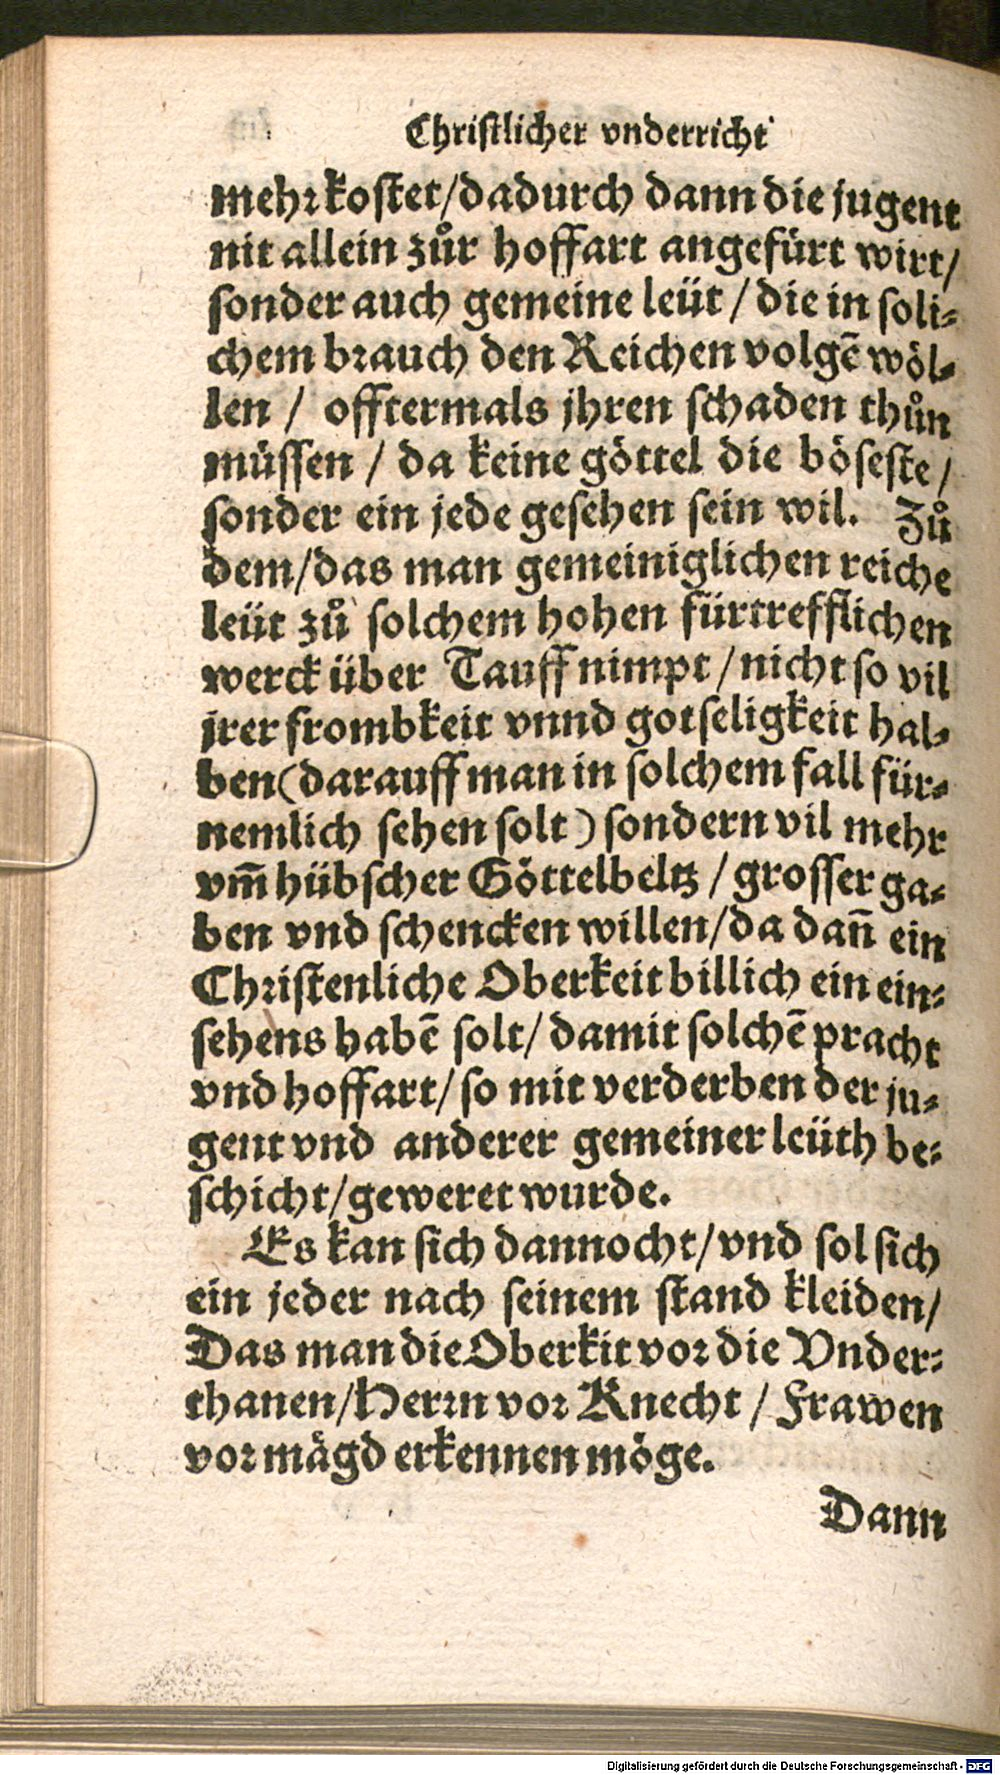 Christlicher vnderricht
mehr kostet/dadurch dann die jugent
nit allein zůr hoffart angefürt wirt/
sonder auch gemeine leüt / die in soli⸗
chem brauch den Reichen volgẽ wöl⸗
len / offtermals jhren schaden thůn
müssen / da keine göttel die böseste /
sonder ein jede gesehen sein wil. Zů
dem/das man gemeiniglichen reiche
leüt zů solchem hohen fürtrefflichen
werck über Tauff nimpt / nicht so vil
jrer frombkeit vnnd gotseligkeit hal⸗
ben (darauff man in solchem fall für⸗
nemlich sehen solt) sondern vil mehr
vm̃ hübscher Göttelbeltz / grosser ga⸗
ben vnd schencken willen/da dañ ein
Christenliche Oberkeit billich ein ein⸗
sehens habẽ solt/ damit solchẽ pracht
vnd hoffart/ so mit verderben der ju⸗
gent vnd anderer gemeiner leüth be⸗
schicht/geweret wurde.
Es kan sich dannocht/vnd sol sich
ein jeder nach seinem stand kleiden/
Das man die Oberkit vor die Vnder⸗
thanen/Herrn vor Knecht / Frawen
vor mägd erkennen möge.
Dann
Digitalisierung gefördert durch die Deutsche Forschungsgemeinschaft - DFG